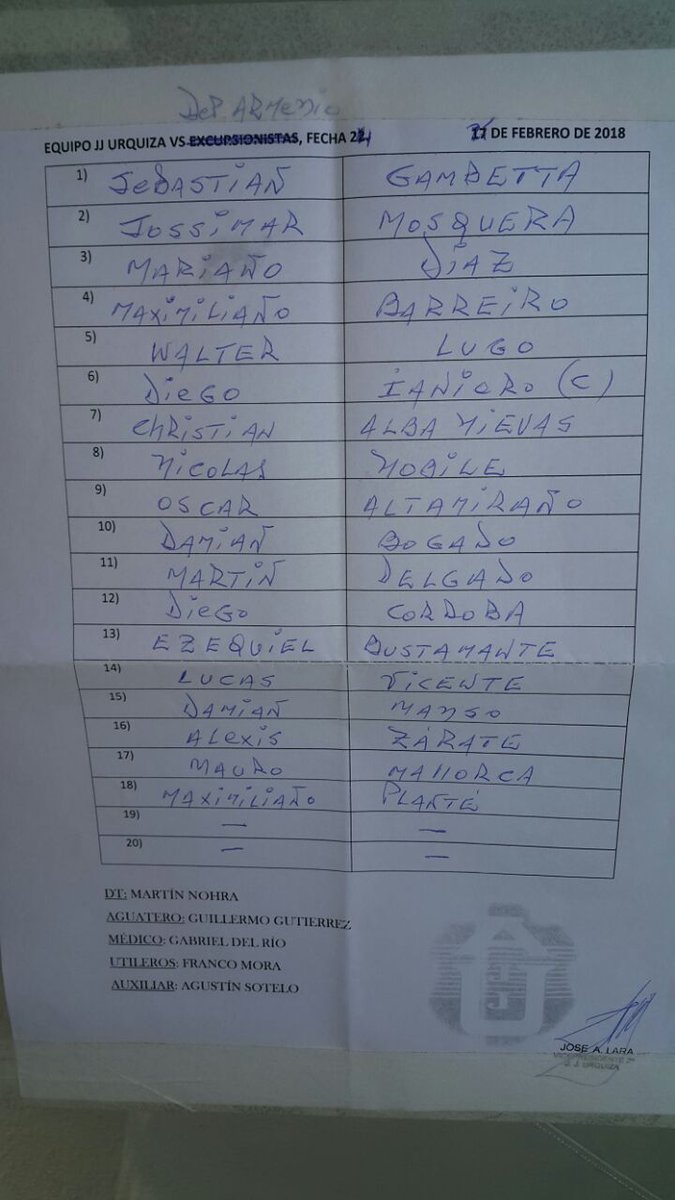 DEP ARMENIO
EQUIPO JJ URQUIZA VS EXCURSIONISTAS, FECHA 24 DE FEBRERO DE 2018
1) SEBASTIAÑ GAMBETTA
2) JOSSIMAR MOSQUERA
3) MARIAÑO DIAZ
4) MAXIMILIAÑO BARREIRO
5) WALTER LUGO
6) DIEGO IANIERO (C)
7) CHRISTIAN ALBA NIEVAS
8) NICOLAS NOBILE
9) OSCAR ALTAMIRAÑO
10) DAMIAÑ BOGADO
11) MARTIÑ DELGADO
12) DIEGO CORDOBA
13) EZEQUIEL BUSTAMANTE
14) LUCAS VICENTE
15) DAMIAÑ MANSO
16) ALEXIS ZÁRATE
17) MAURO MALLORCA
18) MAXIMILIAÑO PLANTÉ
19) — —
20) — —
DT: MARTÍN NOHRA
AGUATERO: GUILLERMO GUTIERREZ
MÉDICO: GABRIEL DEL RÍO
UTILEROS: FRANCO MORA
AUXILIAR: AGUSTÍN SOTELO
JOSE A. LARA
VICEPRESIDENTE
J. J. URQUIZA